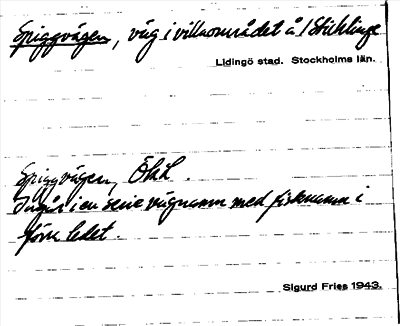 Spiggvägen, väg i villaområdet å Stickinge
Lidingö stad. Stockholms län.
Spiggvägen, ÖhL.
Ingår i en serie vägnamn med fisknamn i
förra ledet.
Sigurd Fries 1943.